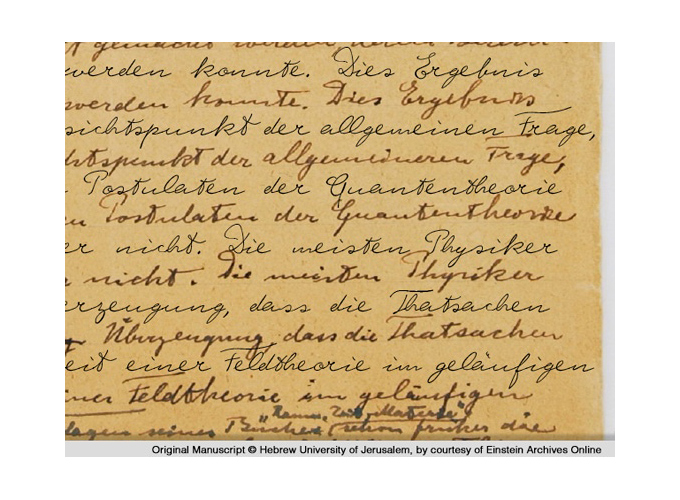 gemacht werden
werden konnte. Dies Ergebnis
werden konnte. Dies Ergebnis
sichtspunkt der allgemeinen Frage,
chtspunkt der allgemeineren Frage,
Postulaten der Quantentheorie
en Postulaten der Quantentheorie
er nicht. Die meisten Physiker
nicht. Die meisten Physiker
erzeugung, dass die Thatsachen
Überzeugung, dass die Thatsachen
eit einer Feldtheorie im geläufigen
iner Feldtheorie im geläufigen
"Raum, Zeit, Materie"
lagen seines Buches (schon früher die
Original Manuscript © Hebrew University of Jerusalem, by courtesy of Einstein Archives Online